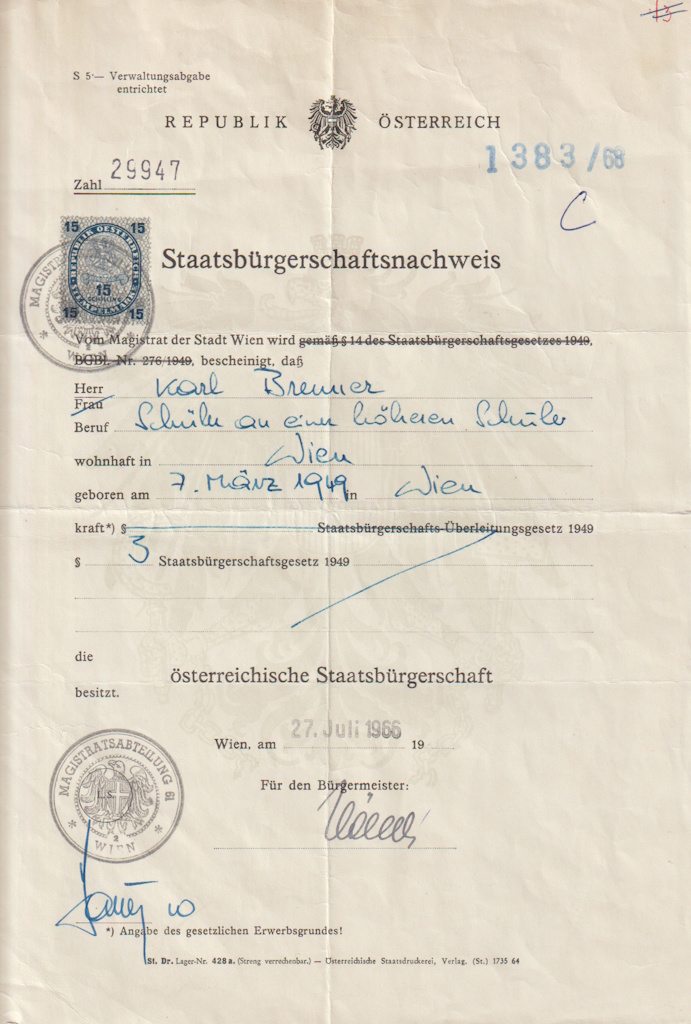 S 5·— Verwaltungsabgabe
entrichtet
REPUBLIK ÖSTERREICH
1383/68
Zahl 29947
C
15 15
REPUBLIK OESTERREICH
15
SCHILLING
STEMPELMARKE
15 15
MAGIST
WIEN
Staatsbürgerschaftsnachweis
Vom Magistrat der Stadt Wien wird gemäß § 14 des Staatsbürgerschaftsgesetzes 1949,
BGBl. Nr. 276/1949, bescheinigt, daß
Herr Karl Brenner
Frau
Beruf Schüler an einer höheren Schule
wohnhaft in Wien
geboren am 7. März 1949 in Wien
kraft*) § Staatsbürgerschafts-Überleitungsgesetz 1949
§ 3 Staatsbürgerschaftsgesetz 1949
die
österreichische Staatsbürgerschaft
besitzt.
Wien, am 27. Juli 1966 19
Für den Bürgermeister:
MAGISTRATSABTEILUNG 61
L.S.
2
WIEN
*) Angabe des gesetzlichen Erwerbsgrundes!
St. Dr. Lager-Nr. 428 a. (Streng verrechenbar.) — Österreichische Staatsdruckerei, Verlag. (St.) 1735 64